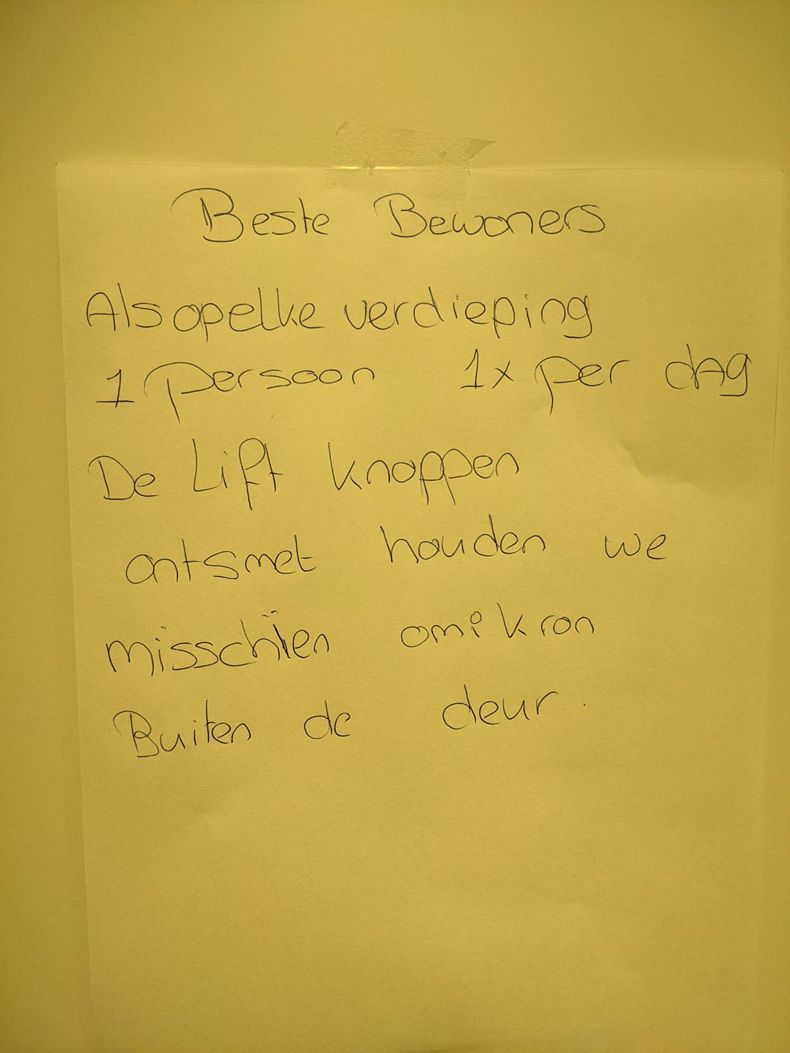 Beste Bewoners
Als op elke verdieping
1 persoon 1x per dag
De Lift knoppen
ontsmet houden we
misschien omikron
Buiten de deur.